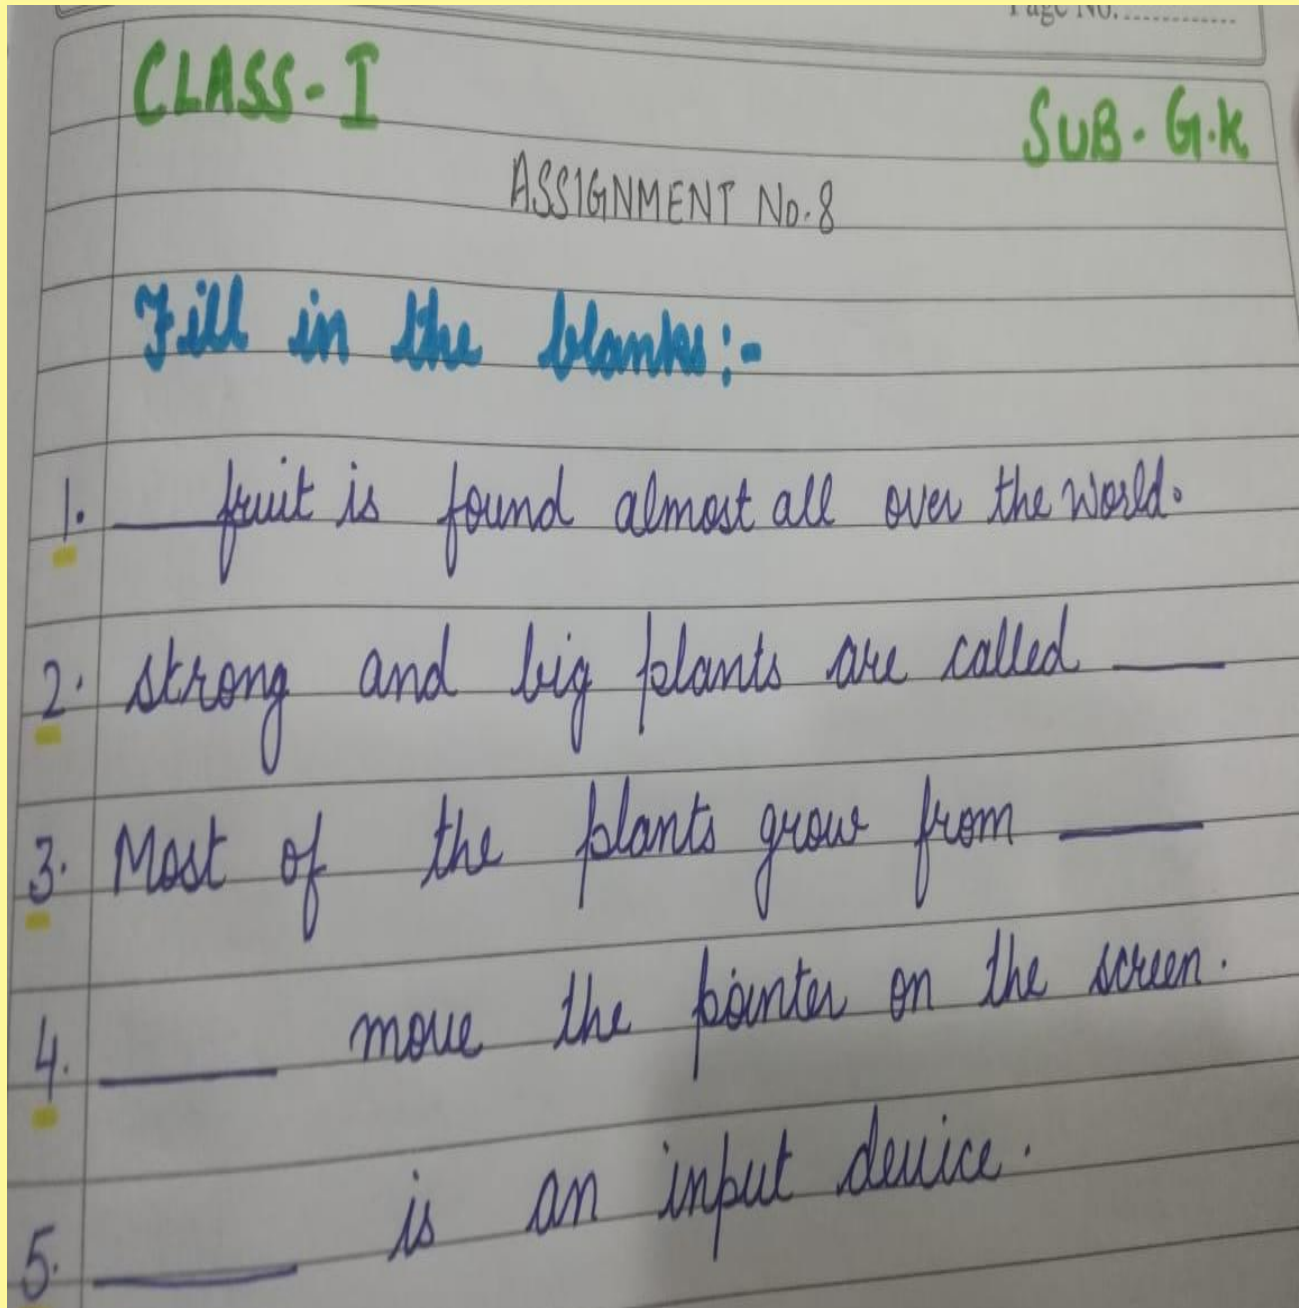 Page No. ..............
CLASS-I
SUB. G.K
ASSIGNMENT No.8
Fill in the blanks:-
1. ____ fruit is found almost all over the World.
2. strong and big plants are called ____
3. Most of the plants grow from ____
4. ____ move the pointer on the screen.
5. ____ is an input device.